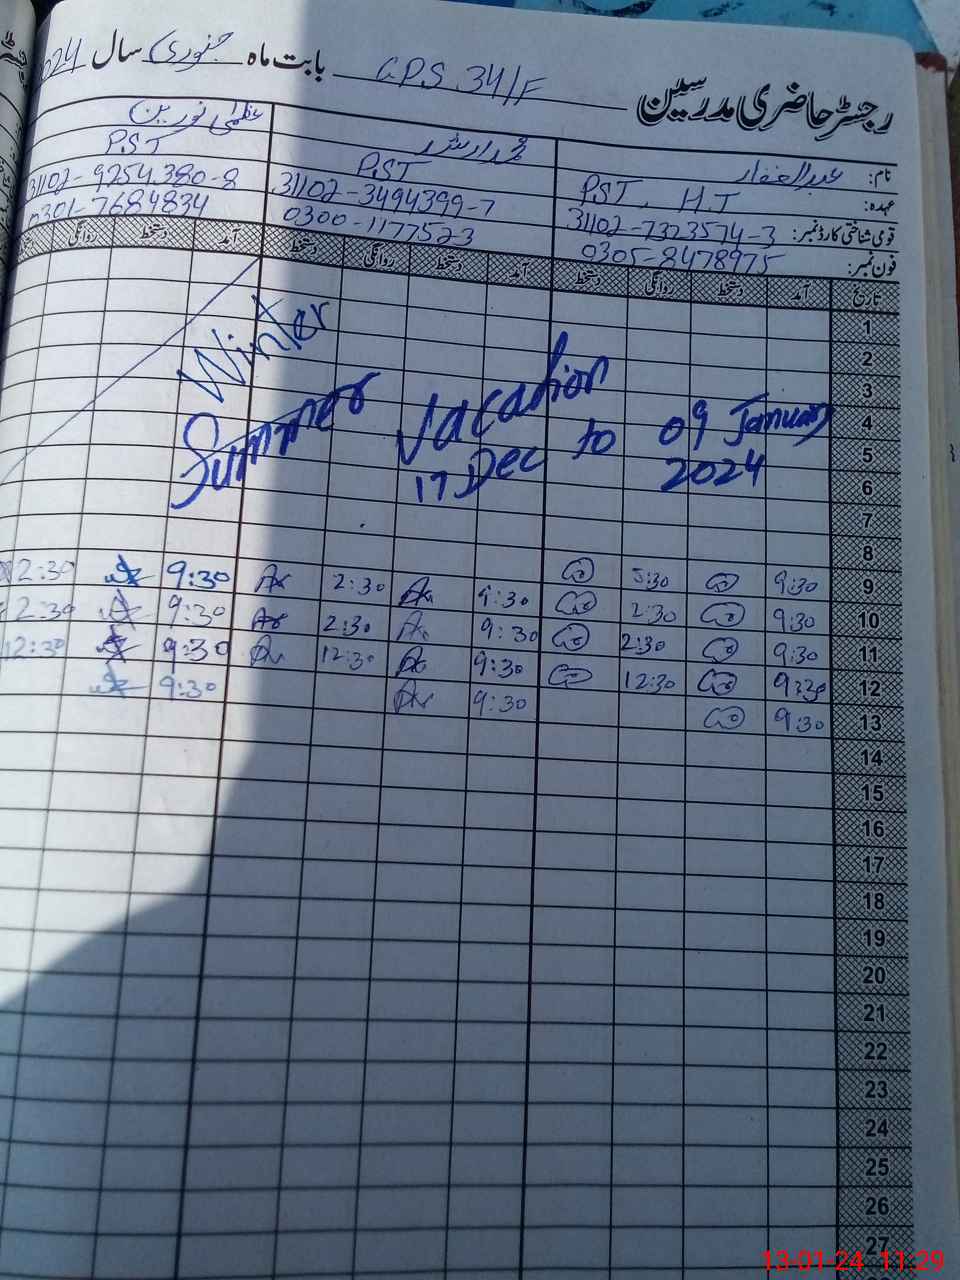 رجسٹر حاضری مدرسین GPS 34/F بابت ماہ جنوری سال 2024
نام: عبدالغفار
عظمیٰ نورین
عہدہ: PST, H.T
PST
PST
قومی شناختی کارڈ نمبر: 31102-7323574-3
31102-3494399-7
31102-9254380-8
فون نمبر: 0305-8478975
0300-1177523
0301-7684834
تاریخ آمد دستخط روانگی دستخط آمد دستخط روانگی دستخط آمد دستخط روانگی
1
2
3
4
5
6
7
8
Winter
Summer Vacation
17 Dec to 09 January
2024
9 9:30 5:30 9:30 2:30 9:30 2:30
10 9:30 2:30 9:30 2:30 9:30 2:30
11 9:30 2:30 9:30 12:30 9:30 12:30
12 9:30 12:30 9:30 9:30
13 9:30
14
15
16
17
18
19
20
21
22
23
24
25
26
27
13-01-24 11:29